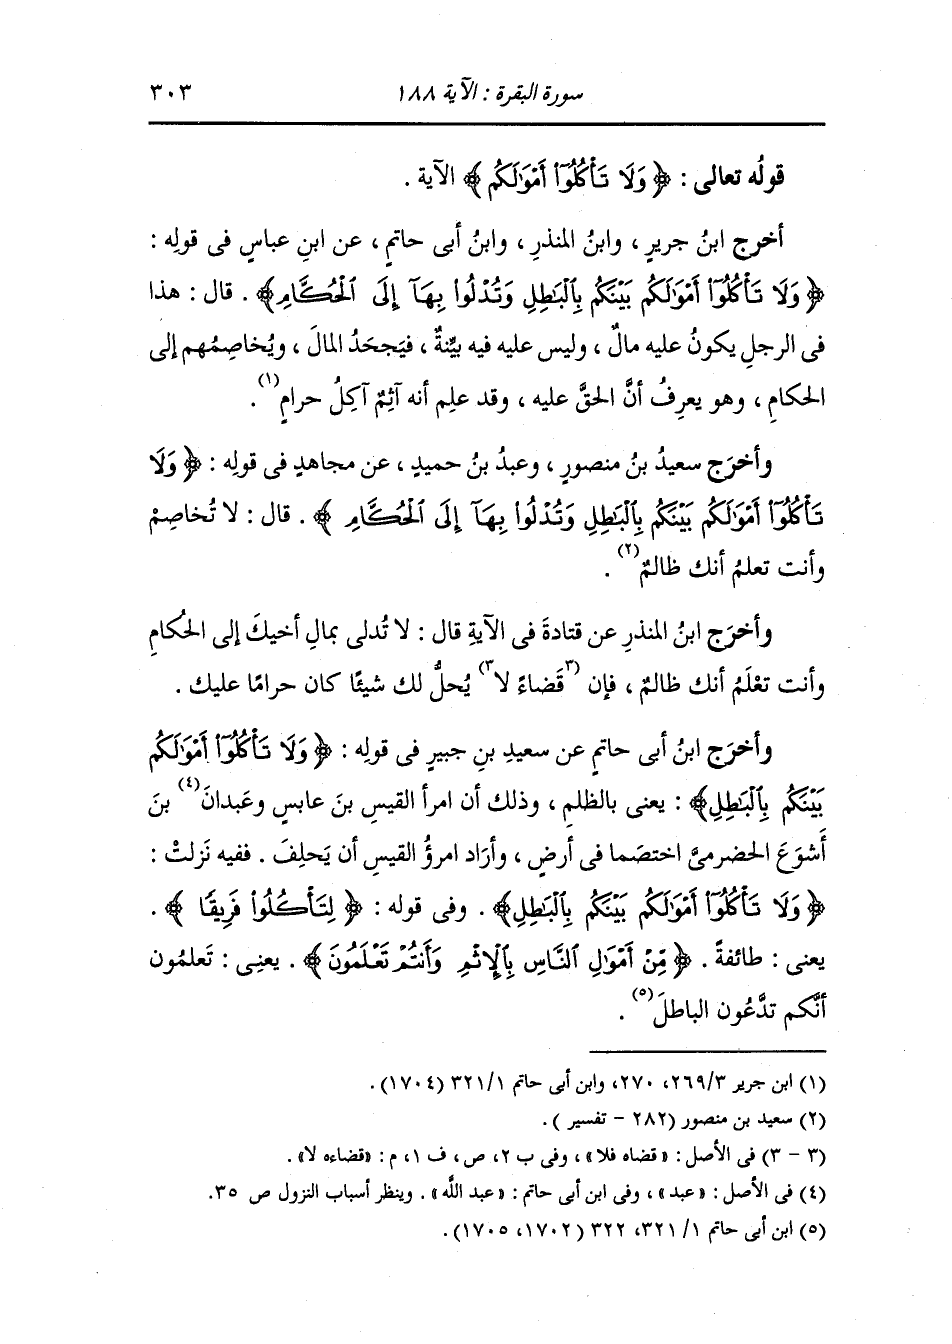 سورة البقرة : الآية ١٨٨ ٣٠٣
قولُه تعالى : ﴿ وَلَا تَأْكُلُوٓا۟ أَمْوَٰلَكُم ﴾ الآية .
أخرج ابنُ جريرٍ ، وابنُ المنذرِ ، وابنُ أبى حاتمٍ ، عن ابنِ عباسٍ فى قولِه :
﴿ وَلَا تَأْكُلُوٓا۟ أَمْوَٰلَكُم بَيْنَكُم بِٱلْبَٰطِلِ وَتُدْلُوا۟ بِهَآ إِلَى ٱلْحُكَّامِ ﴾ . قال : هذا
فى الرجلِ يكونُ عليه مالٌ ، وليس عليه فيه بيِّنةٌ ، فيَجحَدُ المالَ ، ويُخاصِمُهم إلى
الحكامِ ، وهو يعرِفُ أنَّ الحقَّ عليه ، وقد علِم أنه آثِمٌ آكِلُ حرامٍ (١) .
وأخرَج سعيدُ بنُ منصورٍ ، وعبدُ بنُ حميدٍ ، عن مجاهدٍ فى قولِه : ﴿ وَلَا
تَأْكُلُوٓا۟ أَمْوَٰلَكُم بَيْنَكُم بِٱلْبَٰطِلِ وَتُدْلُوا۟ بِهَآ إِلَى ٱلْحُكَّامِ ﴾ . قال : لا تُخاصِمْ
وأنت تعلمُ أنك ظالمٌ (٢) .
وأخرَج ابنُ المنذرِ عن قتادةَ فى الآيةِ قال : لا تُدلى بمالِ أخيكَ إلى الحُكامِ
وأنت تعْلَمُ أنك ظالمٌ ، فإن (٣ قَضاءً لا ٣) يُحلُّ لك شيئًا كان حرامًا عليك .
وأخرَج ابنُ أبى حاتمٍ عن سعيدِ بنِ جبيرٍ فى قولِه : ﴿ وَلَا تَأْكُلُوٓا۟ أَمْوَٰلَكُم
بَيْنَكُم بِٱلْبَٰطِلِ ﴾ : يعنى بالظلمِ ، وذلك أن امرأ القيسِ بنَ عابسٍ وعَبدانَ (٤) بنَ
أَشوَعَ الحضرمىَّ اختصَما فى أرضٍ ، وأرَاد امرؤُ القيسِ أن يَحلِفَ . ففيه نَزلتْ :
﴿ وَلَا تَأْكُلُوٓا۟ أَمْوَٰلَكُم بَيْنَكُم بِٱلْبَٰطِلِ ﴾ . وفى قوله : ﴿ لِتَأْكُلُوا۟ فَرِيقًا ﴾ .
يعنى : طائفةً . ﴿ مِّنْ أَمْوَٰلِ ٱلنَّاسِ بِٱلْإِثْمِ وَأَنتُمْ تَعْلَمُونَ ﴾ . يعنِى : تَعلمُون
أنَّكم تدَّعُون الباطلَ (٥) .
(١) ابن جرير ٢٦٩/٣، ٢٧٠، وابن أبى حاتم ٣٢١/١ (١٧٠٤) .
(٢) سعيد بن منصور (٢٨٢ - تفسير ) .
(٣ - ٣) فى الأصل : « قضاه فلا » ، وفى ب ٢، ص ، ف ١، م : «قضاءه لا» .
(٤) فى الأصل : «عبد» ، وفى ابن أبى حاتم : «عبد اللَّه» . وينظر أسباب النزول ص ٣٥.
(٥) ابن أبى حاتم ١/ ٣٢١، ٣٢٢ (١٧٠٢، ١٧٠٥) .